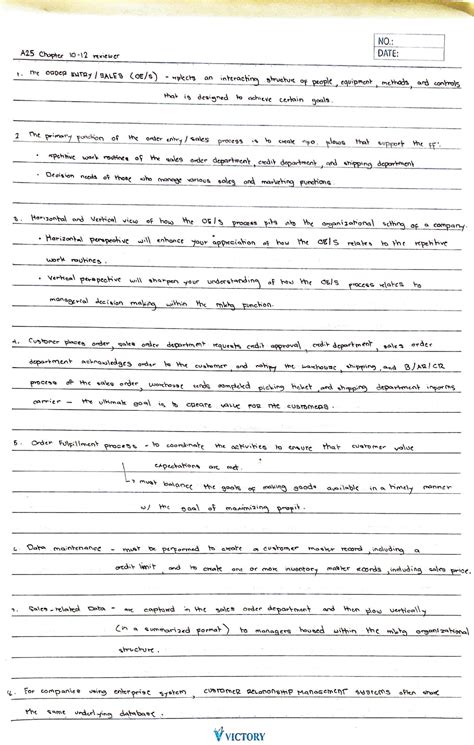 NO.:
DATE:
A25 Chapter 10-12 reviewer
1. The ORDER ENTRY/SALES (OE/S) - reflects an interacting structure of people, equipment, methods, and controls
that is designed to achieve certain goals.
2. The primary function of the order entry/sales process is to create info. flows that support the ff:
• repetitive work routines of the sales order department, credit department, and shipping department
• Decision needs of those who manage various sales and marketing functions
3. Horizontal and Vertical view of how the OE/S process fits into the organizational setting of a company.
• Horizontal perspective will enhance your appreciation of how the OE/S relates to the repetitive
work routines.
• Vertical perspective will sharpen your understanding of how the OE/S process relates to
managerial decision making within the mktg function.
4. Customer places order, sales order department requests credit approval, credit department, sales order
department acknowledges order to the customer and notify the warehouse, shipping, and B/AR/CR
process of the sales order, warehouse sends completed picking ticket and shipping department informs
carrier - the ultimate goal is to CREATE VALUE FOR THE CUSTOMERS.
5. Order Fulfillment process - to coordinate the activities to ensure that customer value
expectations are met.
↳ must balance the goals of making goods available in a timely manner
w/ the goal of maximizing profit.
6. Data maintenance - must be performed to create a customer master record, including a
credit limit and to create one or more inventory master records, including sales price.
7. Sales-related Data - are captured in the sales order department and then flow vertically
(in a summarized format) to managers housed within the mktg organizational
structure.
8. For companies using enterprise system, CUSTOMER RELATIONSHIP MANAGEMENT SYSTEMS often share
the same underlying database.
VICTORY